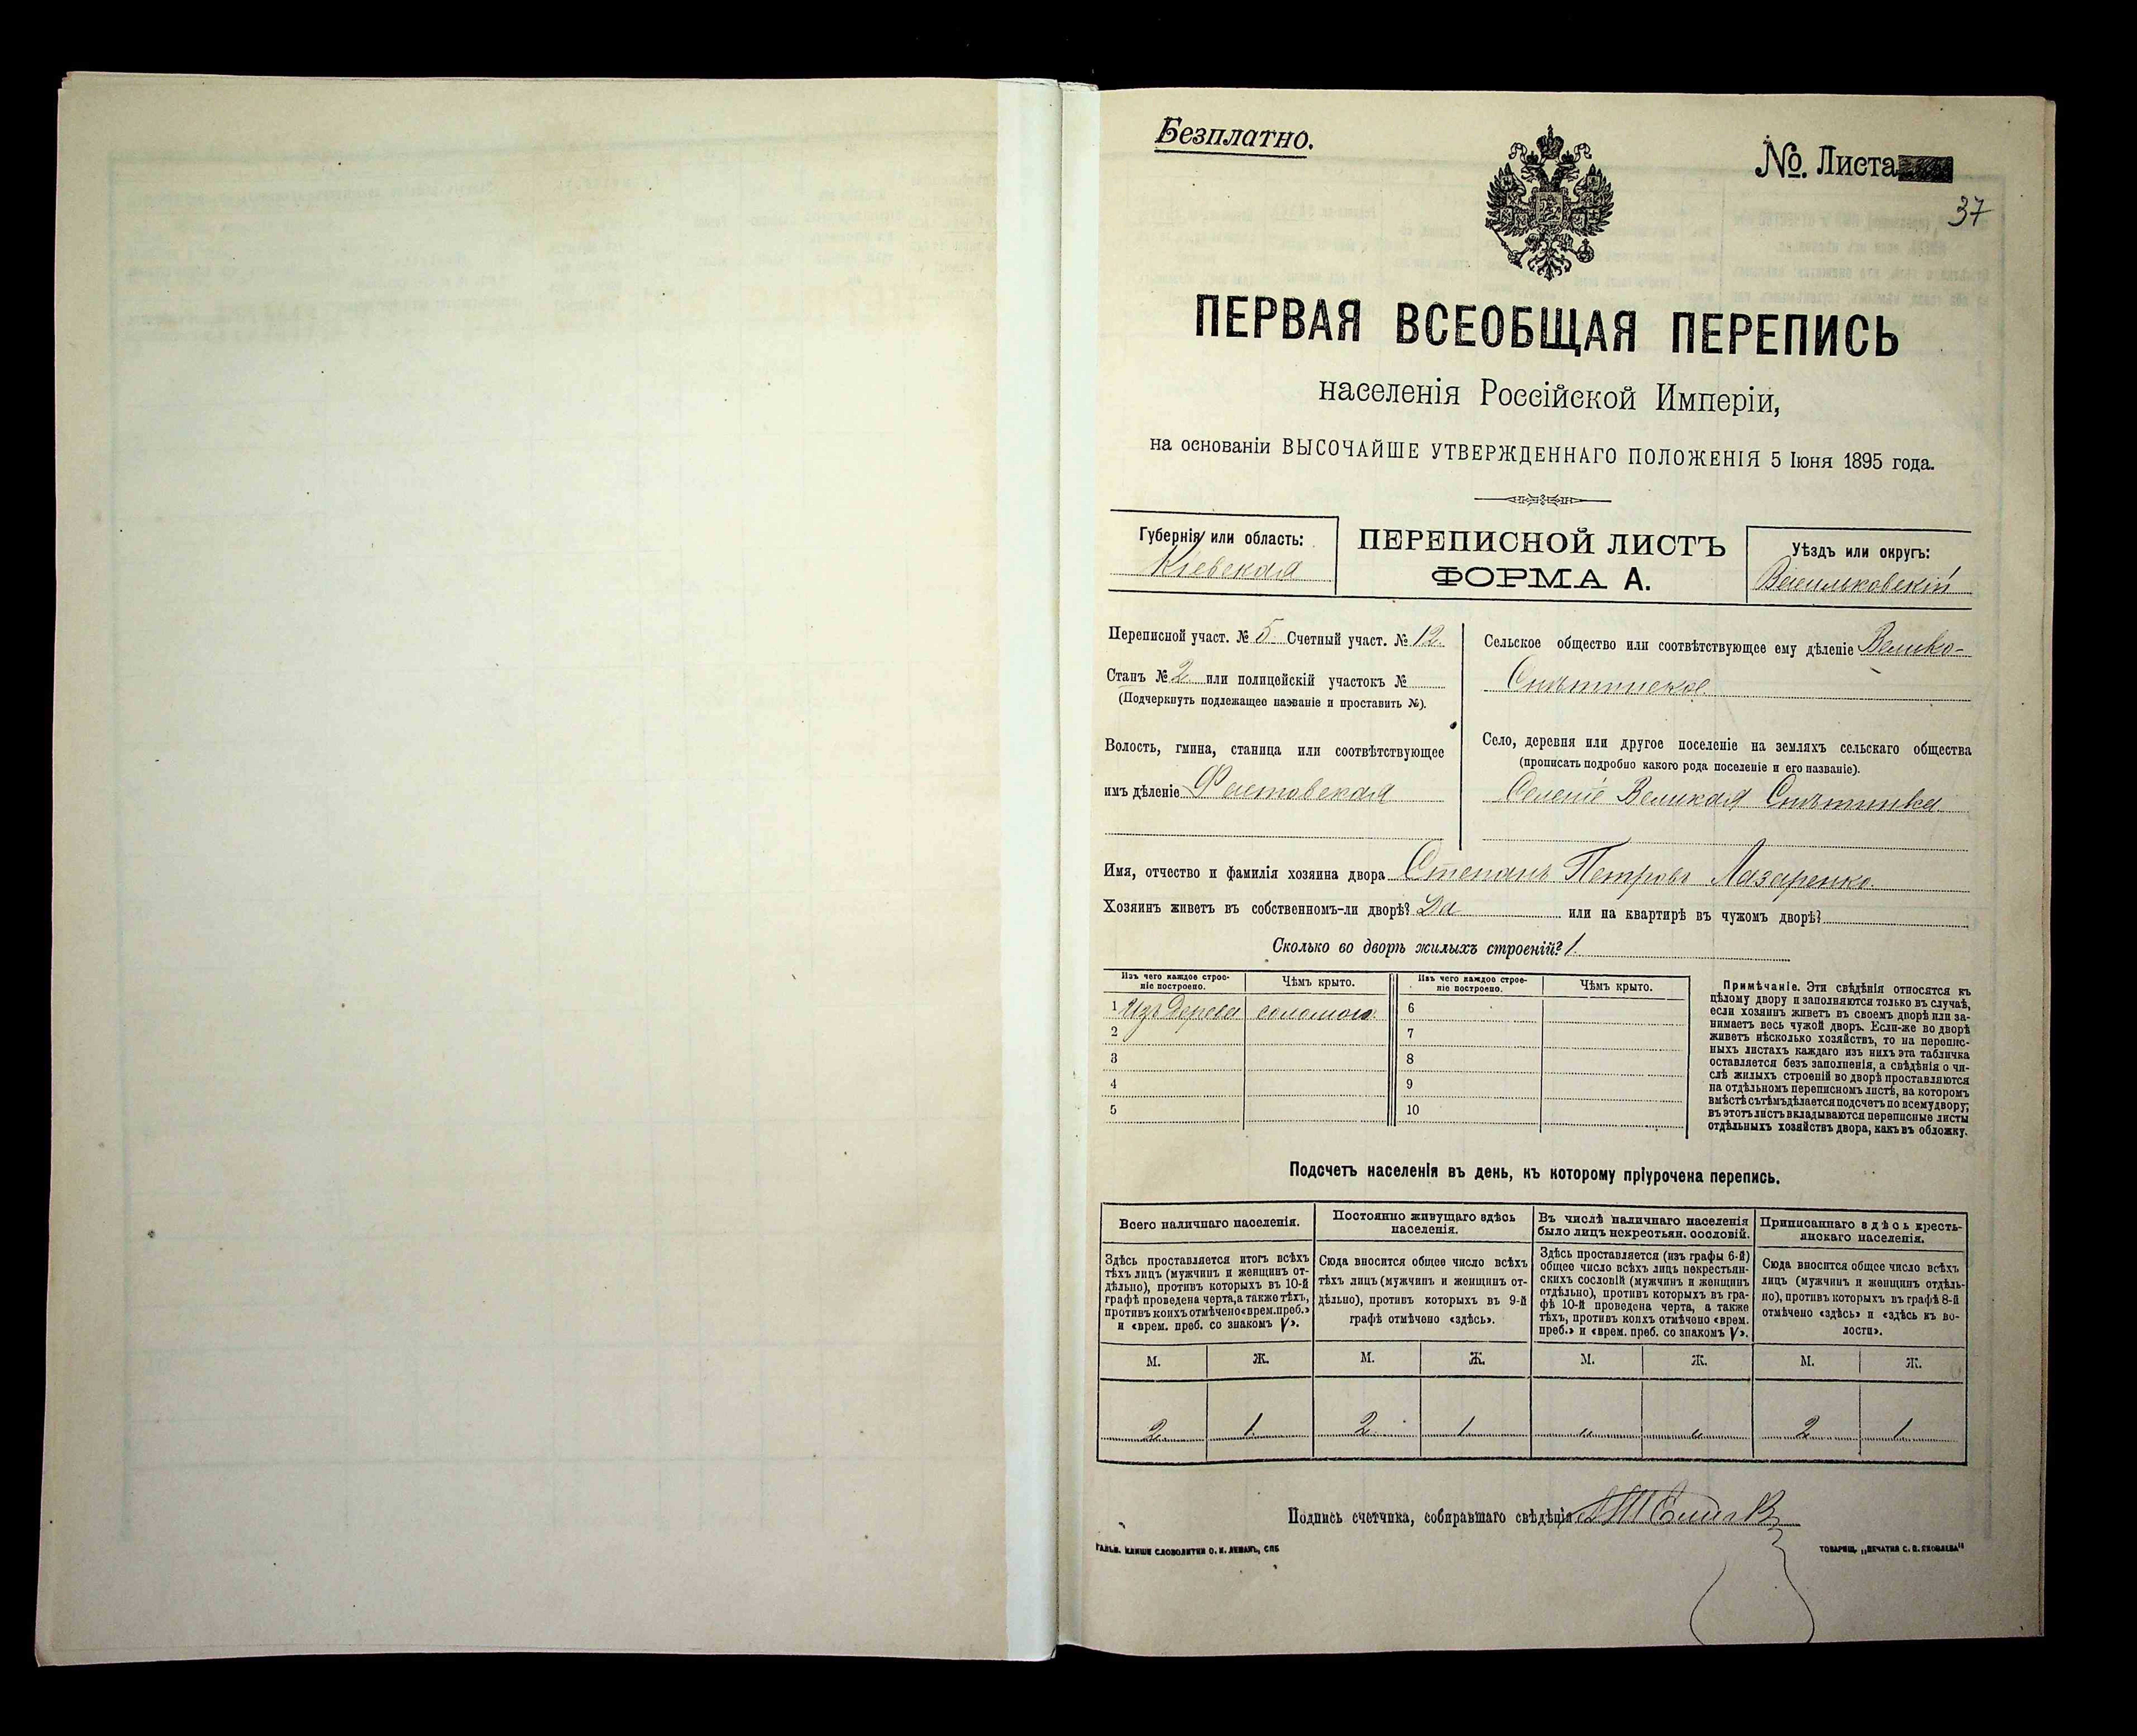 Безплатно.
№. Листа
37
ПЕРВАЯ ВСЕОБЩАЯ ПЕРЕПИСЬ
населенія Россійской Имперіи,
на основаніи ВЫСОЧАЙШЕ УТВЕРЖДЕННАГО ПОЛОЖЕНІЯ 5 Іюня 1895 года.
Губернія или область:
Кіевская
ПЕРЕПИСНОЙ ЛИСТЪ
ФОРМА А.
Уѣздъ или округъ:
Васильковскій
Переписной участ. № 5 Счетный участ. № 12.
Станъ № 2 или полицейскій участокъ №
(Подчеркнуть подлежащее названіе и проставить №).
Волость, гмина, станица или соотвѣтствующее
имъ дѣленіе Фастовская
Сельское общество или соотвѣтствующее ему дѣленіе Велико-
Снѣтинское
Село, деревня или другое поселеніе на земляхъ сельскаго общества
(прописать подробно какого рода поселеніе и его названіе).
Селеніе Великая Снѣтинка
Имя, отчество и фамилія хозяина двора Степанъ Петровъ Лазаренко.
Хозяинъ живетъ въ собственномъ-ли дворѣ? Да или на квартирѣ въ чужомъ дворѣ?
Сколько во дворѣ жилыхъ строеній? 1.
Изъ чего каждое строе-
ніе построено.
Чѣмъ крыто.
Изъ чего каждое строе-
ніе построено.
Чѣмъ крыто.
1 Изъ дерева соломою. 6
2 7
3 8
4 9
5 10
Примѣчаніе. Эти свѣдѣнія относятся къ
цѣлому двору и заполняются только въ случаѣ,
если хозяинъ живетъ въ своемъ дворѣ или за-
нимаетъ весь чужой дворъ. Если-же во дворѣ
живетъ нѣсколько хозяйствъ, то на перепис-
ныхъ листахъ каждаго изъ нихъ эта табличка
оставляется безъ заполненія, а свѣдѣнія о чи-
слѣ жилыхъ строеній во дворѣ проставляются
на отдѣльномъ переписномъ листѣ, на которомъ
вмѣстѣ съ тѣмъ дѣлается подсчетъ по всему двору;
въ этотъ листъ вкладываются переписные листы
отдѣльныхъ хозяйствъ двора, какъ въ обложку.
Подсчетъ населенія въ день, къ которому пріурочена перепись.
Всего наличнаго населенія.
Здѣсь проставляется итогъ всѣхъ
тѣхъ лицъ (мужчинъ и женщинъ от-
дѣльно), противъ которыхъ въ 10-й
графѣ проведена черта, а также тѣхъ,
противъ коихъ отмѣчено «врем. преб.»
и «врем. преб. со знакомъ V».
Постоянно живущаго здѣсь
населенія.
Сюда вносится общее число всѣхъ
тѣхъ лицъ (мужчинъ и женщинъ от-
дѣльно), противъ которыхъ въ 9-й
графѣ отмѣчено «здѣсь».
Въ числѣ наличнаго населенія
было лицъ некрестьян. сословій.
Здѣсь проставляется (изъ графы 6-й)
общее число всѣхъ лицъ некрестьян-
скихъ сословій (мужчинъ и женщинъ
отдѣльно), противъ которыхъ въ гра-
фѣ 10-й проведена черта, а также
тѣхъ, противъ коихъ отмѣчено «врем.
преб.» и «врем. преб. со знакомъ V».
Приписаннаго здѣсь кресть-
янскаго населенія.
Сюда вносится общее число всѣхъ
лицъ (мужчинъ и женщинъ отдѣль-
но), противъ которыхъ въ графѣ 8-й
отмѣчено «здѣсь» и «здѣсь къ во-
лости».
М. Ж. М. Ж. М. Ж. М. Ж.
2 1 2 1 " " 2 1
Подпись счетчика, собиравшаго свѣдѣнія
ГАЛЬВ. КЛИШЕ СЛОВОЛИТНИ О. И. ЛЕМАНЪ, СПБ
ТОВАРИЩ. „ПЕЧАТНЯ С. П. ЯКОВЛЕВА"